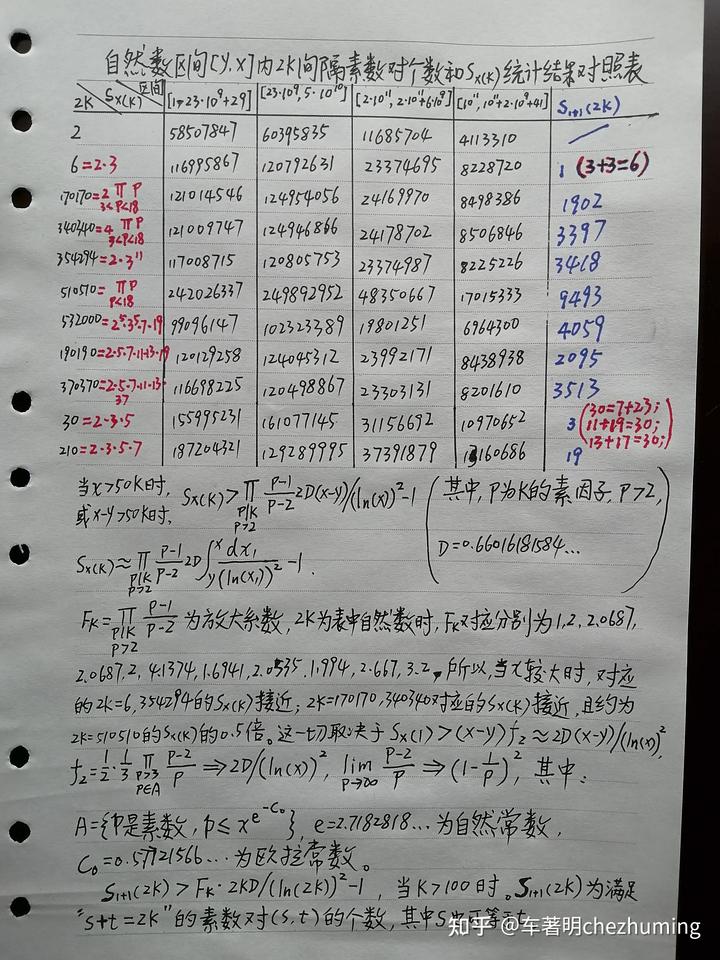 自然数区间[y,x]内2K间隔素数对个数和Sx(K)统计结果对照表
2K Sx(K) 区间 [1→23·10⁹+29] [23·10⁹,5·10¹⁰] [2·10¹¹,2·10¹¹+6·10⁹] [10¹¹,10¹¹+2·10⁹+41] S₁₊₁(2K)
2 58507847 60395835 11685704 4113310
6=2·3 116995867 120792631 23374695 8228720 1 (3+3=6)
170170=2∏P 3<P<18 121014546 124954056 24169970 8498386 1902
340340=4∏P 3<P<18 121009747 124946866 24178702 8506846 3397
354294=2·3¹¹ 117008715 120805753 23374987 8225226 3418
510510=∏P P<18 242026337 249892952 48350667 17015333 9493
532000=2⁵·5³·7·19 99096147 102323389 19801251 6964300 4059
190190=2·5·7·11·13·19 120129258 124045312 23992171 8438938 2095
370370=2·5·7·11·13·37 116698225 120498867 23303131 8201610 3513
30=2·3·5 155995231 161077145 31156692 10970652 3 (30=7+23; 11+19=30; 13+17=30;)
210=2·3·5·7 187204321 129289995 37391879 13160686 19
当x>50K时,
或x-y>50K时, Sx(K)>∏ P|K P>2 (P-1)/(P-2) 2D(x-y)/(ln(x))²-1 (其中,P为K的素因子,P>2,
D=0.66016181584…)
Sx(K)≈∏ P|K P>2 (P-1)/(P-2) 2D∫yˣ dx₁/(ln(x₁))² -1.
FK=∏ P|K P>2 (P-1)/(P-2) 为放大系数,2K为表中自然数时,FK对应分别为1,2,2.0687,
2.0687,2,4.1374,1.6941,2.0535,1.994,2.667,3.2。所以,当x较大时,对应
的2K=6,354294的Sx(K)接近;2K=170170,340340对应的Sx(K)接近,且约为
2K=510510的Sx(K)的0.5倍。这一切取决于Sx(1)>(x-y)f₂≈2D(x-y)/(ln(x))²,
f₂=1/2·1/3 ∏ P>3 P∈A (P-2)/P ⇒2D/(ln(x))², lim P→∞ (P-2)/P ⇒(1-1/P)², 其中:
A={P是素数, P≤x^(e^(-C₀))}, e=2.7182818…为自然常数,
C₀=0.57721566…为欧拉常数。
S₁₊₁(2K)>FK·2KD/(ln(2K))²-1, 当K>100时。S₁₊₁(2K)为满足
"s+t=2K"的素数对(s,t)的个数,其中S
知乎 @车著明chezhuming